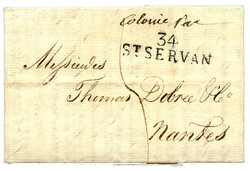 Colonie Par
34
ST SERVAN
Messieurs
Thomas Dobrée & Co
Nantes